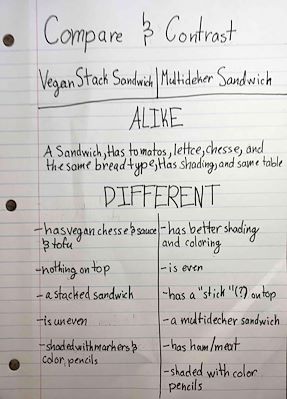 Compare & Contrast
Vegan Stack Sandwich | Multideker Sandwich
ALIKE
A Sandwich, Has tomatos, lettce, chesse, and
the same bread type, Has Shading, and same table
DIFFERENT
-has vegan chesse & sauce
& tofu
-nothing on top
-a stacked sandwich
-is uneven
-shaded with markers &
color pencils
-has better shading
and coloring
-is even
-has a "stick"(?) on top
-a multidecher sandwich
-has ham/meat
-shaded with color
pencils